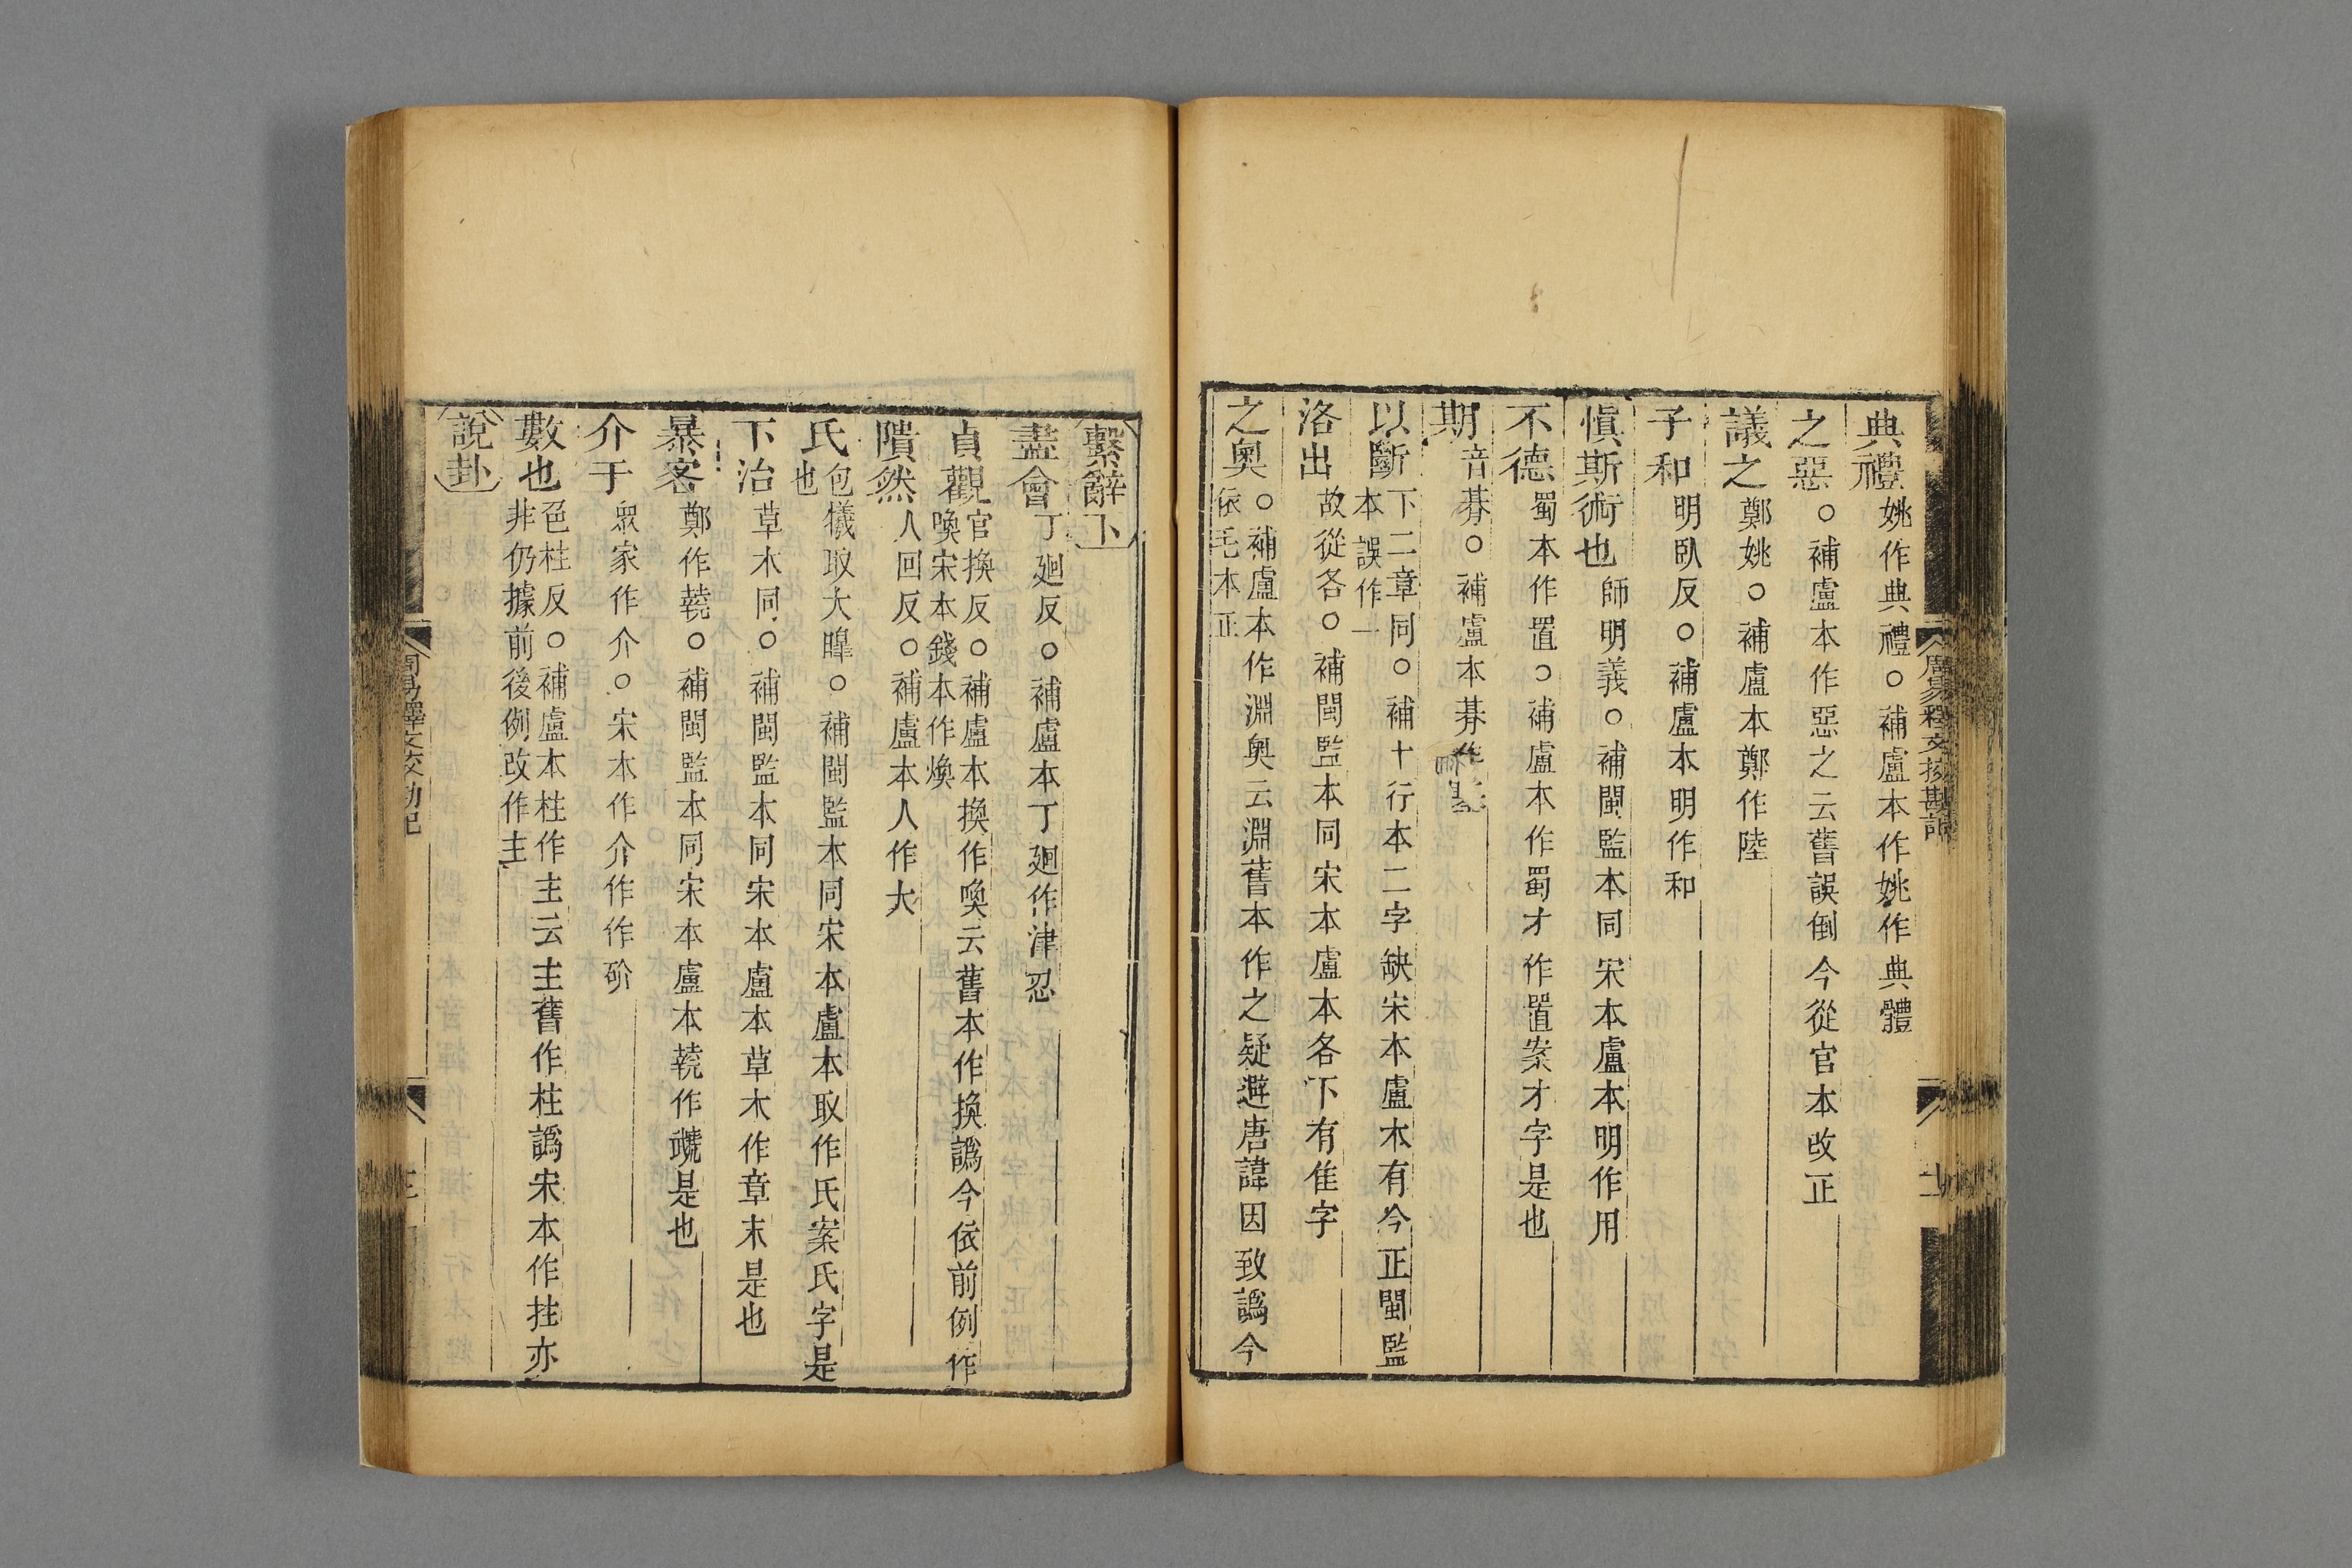 典禮姚作典禮○補盧本作姚作典體
之惡○補盧本作惡之云舊誤倒今從官本改正
議之鄭姚○補盧本鄭作陸
子和明臥反○補盧本明作和
愼斯術也師明義○補閩監本同宋本盧本明作用
不德蜀本作置○補盧本作蜀才作置案才字是也
期音朞○補盧本朞作
以斷下二章同○補十行本二字缺宋本盧本有今正閩監
本誤作一
洛出故從各○補閩監本同宋本盧本各下有隹字
之奧○補盧本作淵奧云淵舊本作之疑避唐諱因致譌今
依毛本正
周易釋文挍勘記
繫辭下
盡會丁𢌞反○補盧本丁𢌞作津忍
貞觀官換反○補盧本換作喚云舊本作換譌今依前例作
喚宋本錢本作煥
隤然人回反○補盧本人作大
氏包犧取大皥○補閩監本同宋本盧本取作氏案氏字是
也
下治草木同○補閩監本同宋本盧本草木作章末是也
暴客鄭作虣○補閩監本同宋本盧本虣作虣是也
介于眾家作介○宋本作介作作砎
數也色柱反○補盧本柱作主云主舊作柱譌宋本作拄亦
非仍據前後例改作主
說卦
周易釋文挍勘記